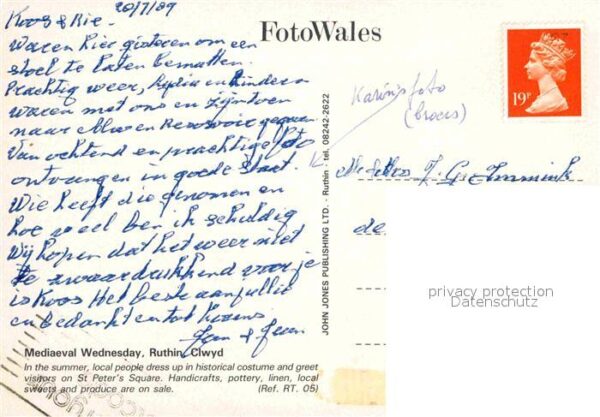 20/7/89
Koos & Rie.
Waren hier gisteren om een
stoel te laten bematten.
Prachtig weer, Lydia en kinderen
waren met ons en zijn toen
naar Alwen Reservoir gegaan.
Van ochtend en prachtige foto
ontvangen in goede staat.
Wie heeft die genomen en
hoe veel ben ik schuldig
Wij hopen dat het weer niet
te zwaar drukkend voor je
is Koos Het beste aan jullie
en bedankt en tot
Jan &
Mediaeval Wednesday, Ruthin, Clwyd
In the summer, local people dress up in historical costume and greet
visitors on St Peter's Square. Handicrafts, pottery, linen, local
sweets and produce are on sale. (Ref. RT. 05)
JOHN JONES PUBLISHING LTD. - Ruthin - tel. 08242-2622
FotoWales
foto
19P
J. G.
de
privacy protection
Datenschutz